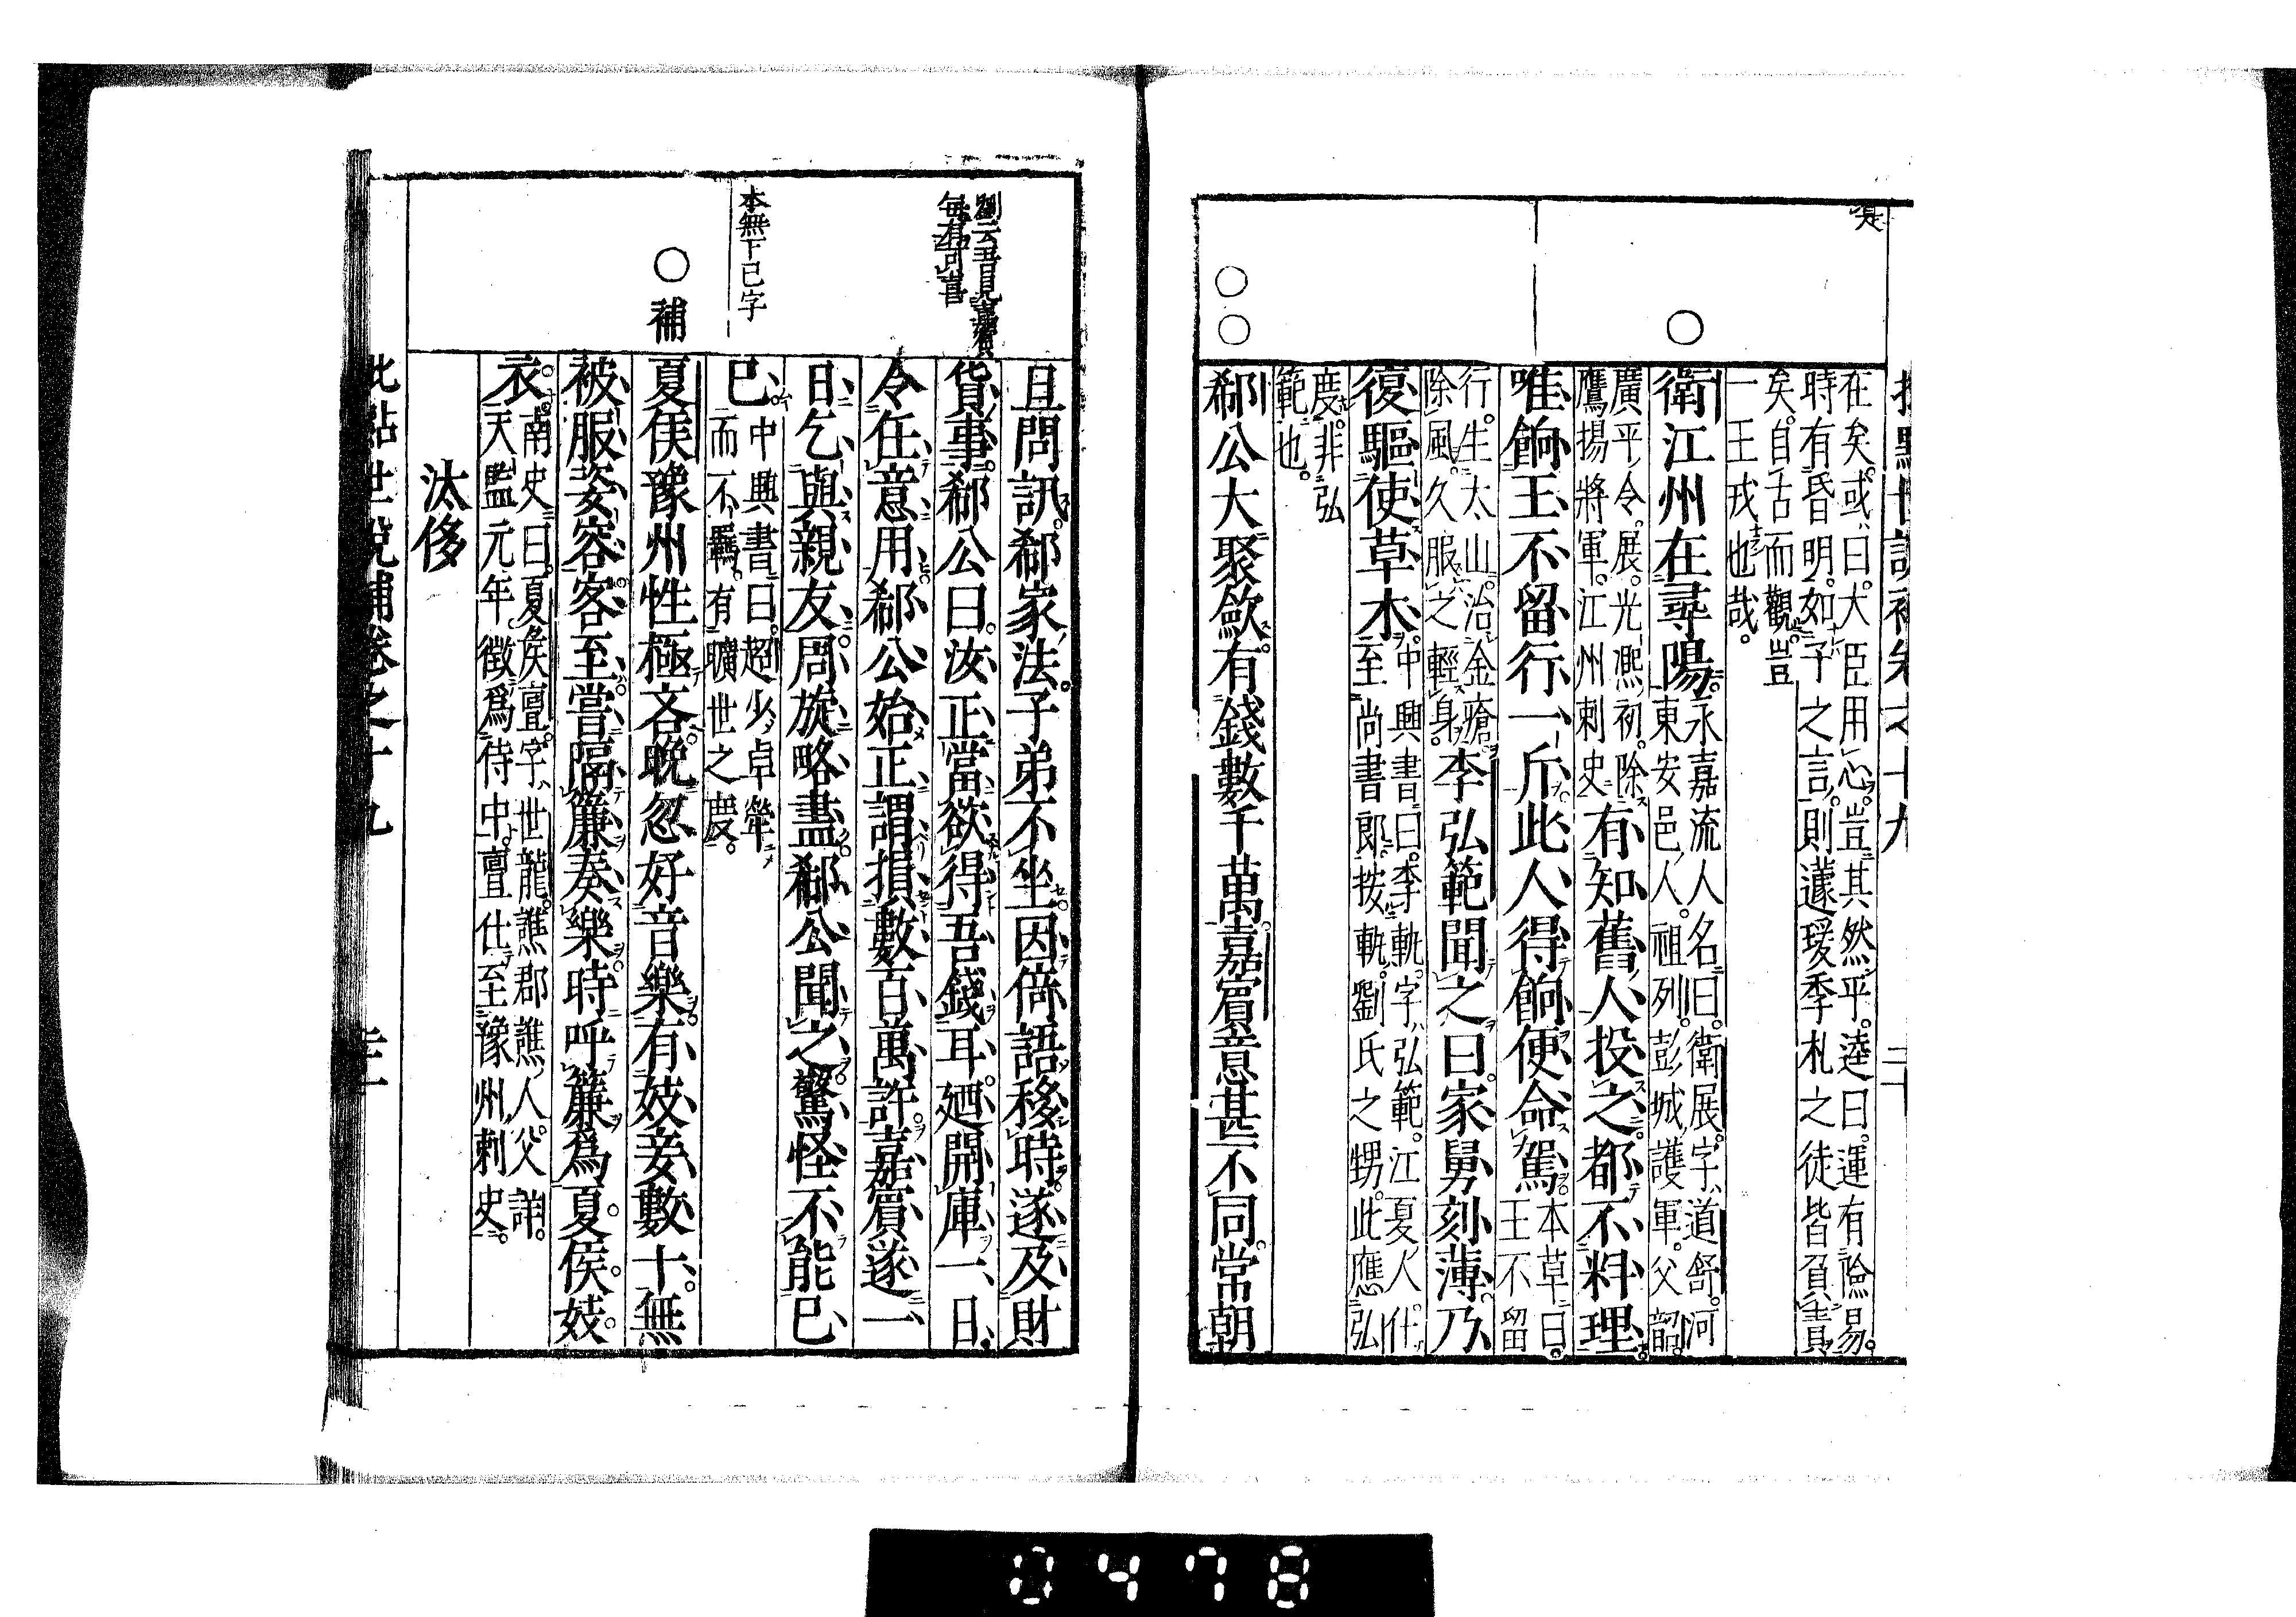 在矣或曰大臣用心豈其然乎逵曰運有險易
時有昏明如子之言則蘧瑗季札之徒皆負責
矣自古而觀豈
一王戎也哉
衛江州在尋陽永嘉流人名曰衛展字道舒河
東安邑人祖列彭城護軍父韶
廣平令展光熙初除
鷹揚將軍江州刺史有知舊人投之都不料理
唯餉王不留行一斤此人得餉便命駕本草曰
王不留
行生太山治金瘡
除風久服之輕身李弘範聞之曰家舅刻薄乃
復驅使草木中興書曰李軌字弘範江夏人仕
至尚書郎按軌劉氏之甥此應弘
度非弘
範也
○
○○
郗公大聚斂有錢數千萬嘉賓意甚不同常朝
且問訊郗家法子弟不坐因倚語移時遂及財
貨事郗公曰汝正當欲得吾錢耳廼開庫一日
令任意用郗公始正謂損數百萬許嘉賓遂一
日乞與親友周旋略盡郗公聞之驚怪不能已
已中興書曰超少卓犖
而不羈有曠世之度
劉云吾見嘉賓
每有可喜
本無下已字
○補
夏侯豫州性極吝晚忽好音樂有妓妾數十無
被服姿容客至嘗隔簾奏樂時呼簾為夏侯妓
衣南史曰夏矦亶字世龍譙郡譙人父詳
天監元年徵爲侍中亶仕至豫州刺史
汰侈
批點世說補卷之十九
0478